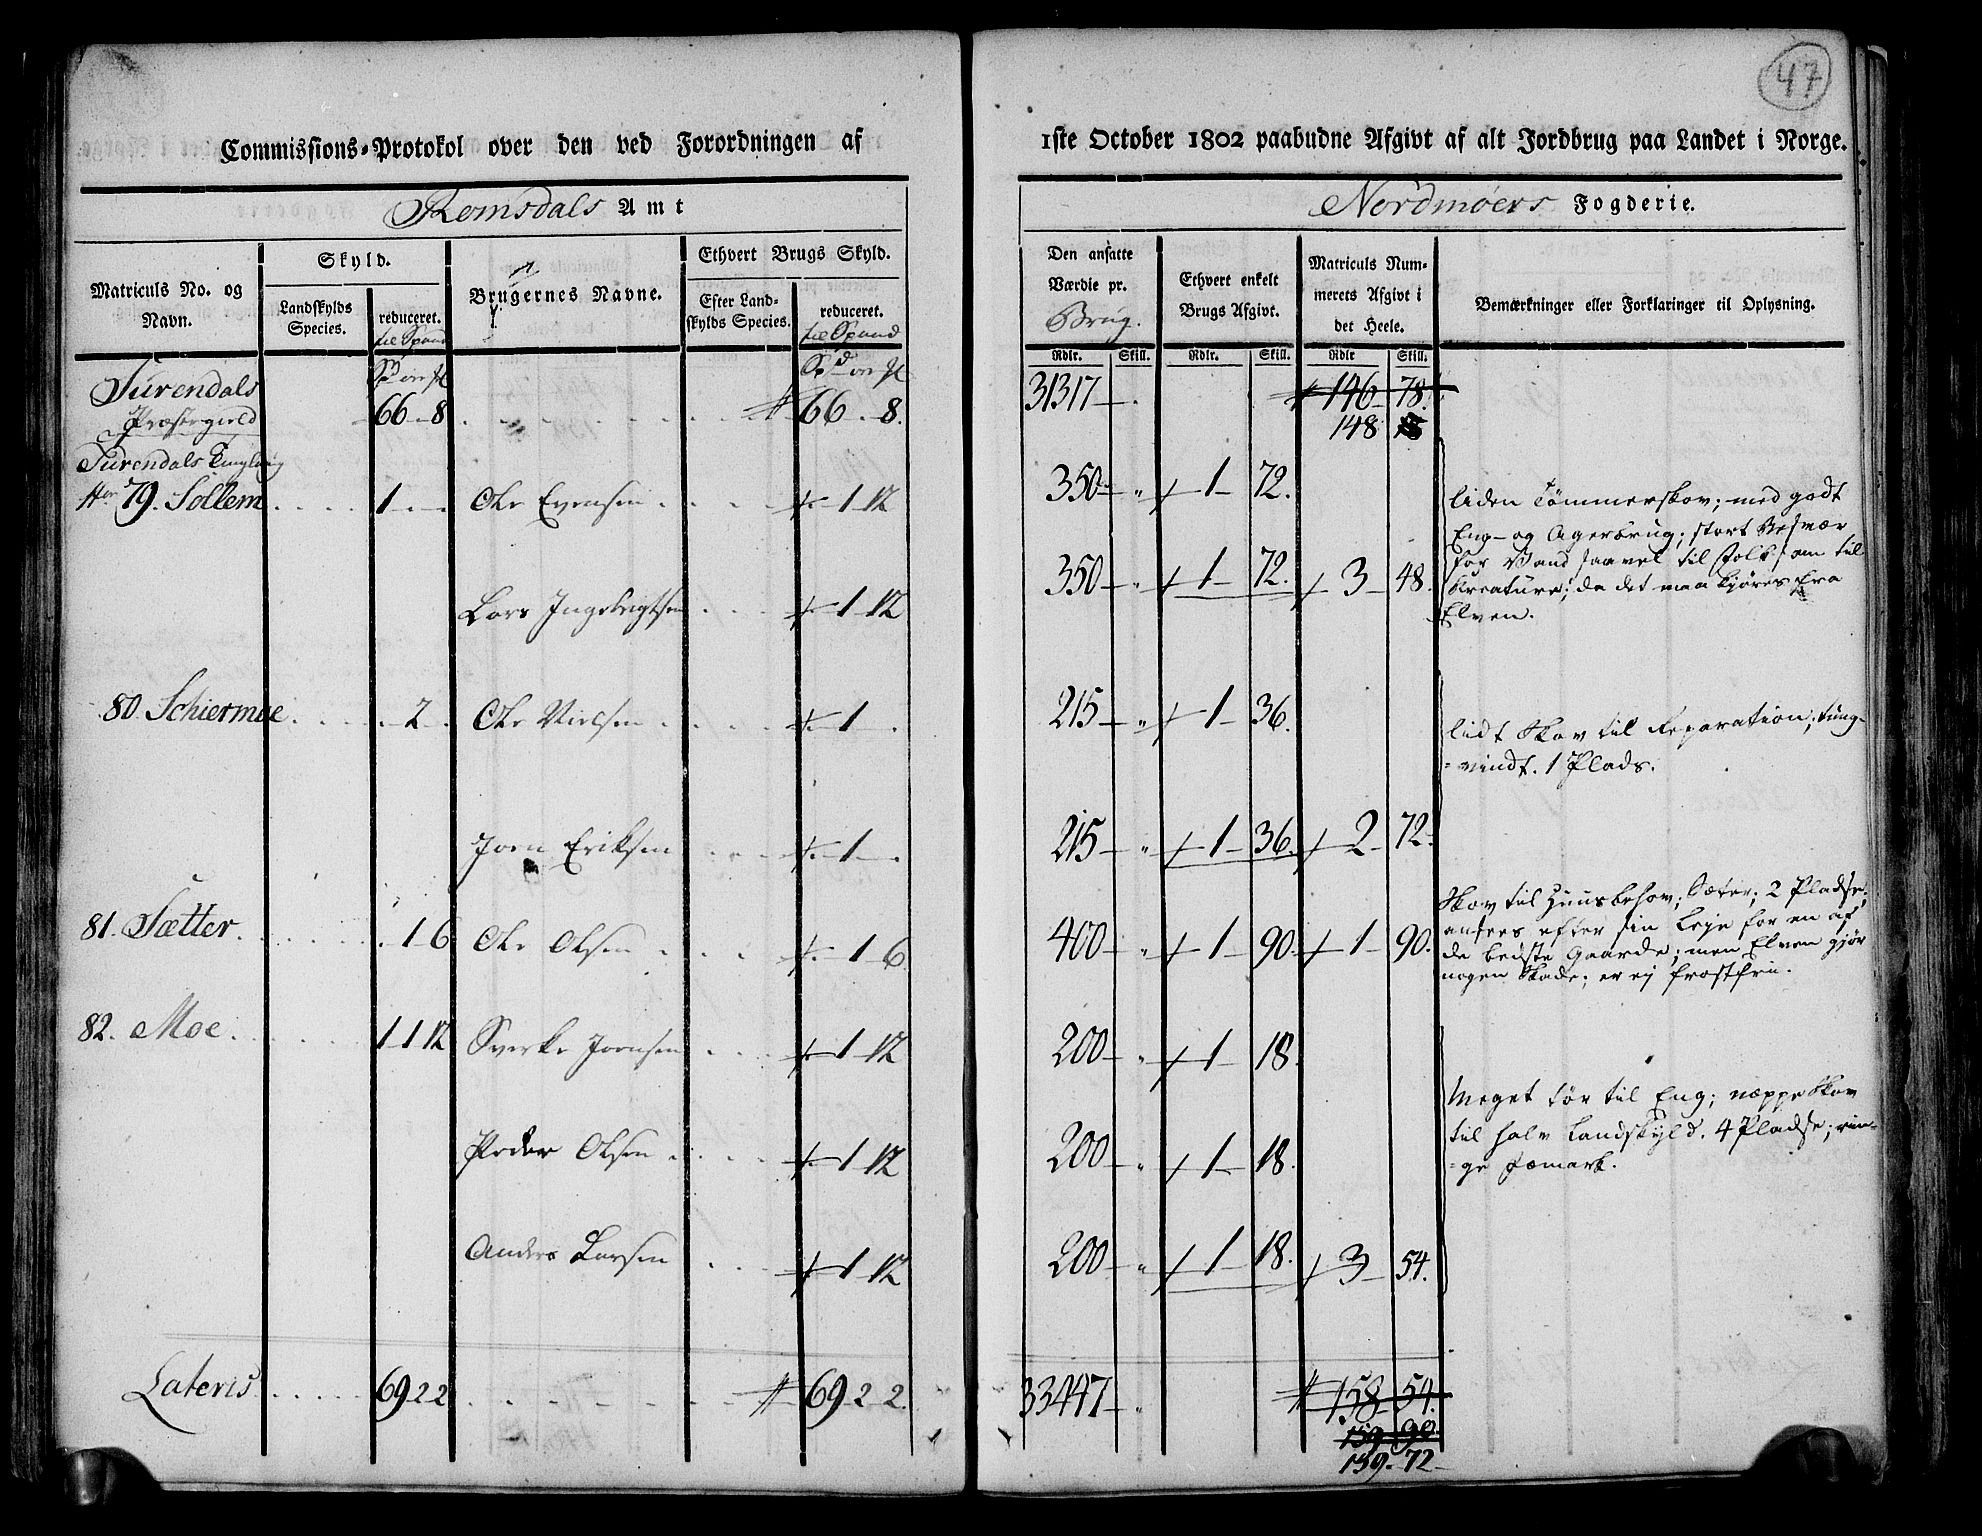 47
Commissions-Protokol over den ved Forordningen af
1ste October 1802 paabudne Afgivt af alt Jordbrug paa Landet i Norge.
Romsdals Amt
Nordmøers Fogderie.
Matriculs No. og Navn.
Skyld.
Landskylds Species.
reduceret. til Spand
Brugernes Navne.
Ethvert Brugs Skyld.
Efter Landskylds Species.
reduceret. til Spand
Den ansatte Værdie pr. Brug.
Ethvert enkelt Brugs Afgivt.
Matriculs Nummerets Afgivt i det Heele.
Bemærkninger eller Forklaringer til Oplysning.
Rdlr. Skill. Rdlr. Skill. Rdlr Skill.
Surendals
Præstegield 66 - 8 66 - 8. 31317 - 146 - 78.
148 18
Surendals Tinglaug
79. Sollem 1 - - Ole Evensen 1 12 350 - 1 - 72.
Lars Ingebrigtsen 1 12 350 - 1 - 72. 3 - 48.
liden Tømmerskov; med godt
Eng- og Agerbrug; stort Besvær
for Vand saavel til Folk som til
Creature; da det maa kjøres fra
Elven.
80. Schiermoe - 2 - Ole Nielsen 1 - 215 - 1 - 36.
Joen Eriksen 1 - 215 - 1 - 36. 2 - 72.
lidt Skov til Reparation; tung-
=vindt. 1 Plads.
81. Sætter 1 6 Ole Olsen 1 6 400 - 1 - 90. 1 - 90.
Skov til Huusbehov; Sæter; 2 Pladse;
ansees efter sin Leje for en af
de beste Gaarde; men Elven gjør
nogen Skade; er ej frostfri.
82. Moe 1 1 12 Sverke Joensen 1 12 200 - 1 - 18.
Peder Olsen 1 12 200 - 1 - 18.
Anders Larsen 1 12 200 - 1 - 18. 3 - 54.
Meget tør til Eng; næppe Skov
til halv Landskyld. 4 Pladse; rin-
=ge Fæmark.
Lateris 69 2 2 69 - 2 - 2. 33447 - 158 54.
159 90
159 - 72 -